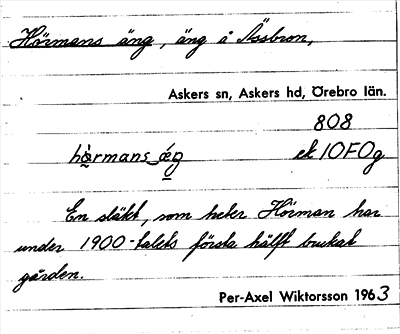 Hörmans äng, äng å Åssbron,
Askers sn, Askers hd, Örebro län.
808
ek 10F0g
En släkt, som heter Hörman har
under 1900-talets första hälft brukat
gården.
Per-Axel Wiktorsson 1963